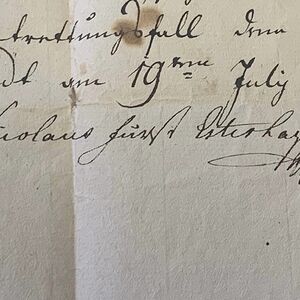 trettungsfall dem
dt am 19ten July
icolaus Fürst Esterhaz